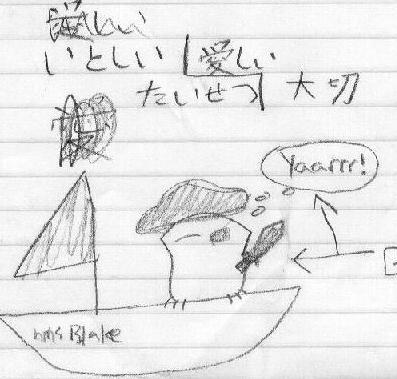 愛しい
いとしい 愛しい
たいせつ 大切
Yaarrr!
hms Blake